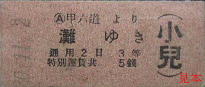 Ⓐ甲六道より
灘ゆき
通用2日 3等
特別運賃共 5銭
小兒
見本